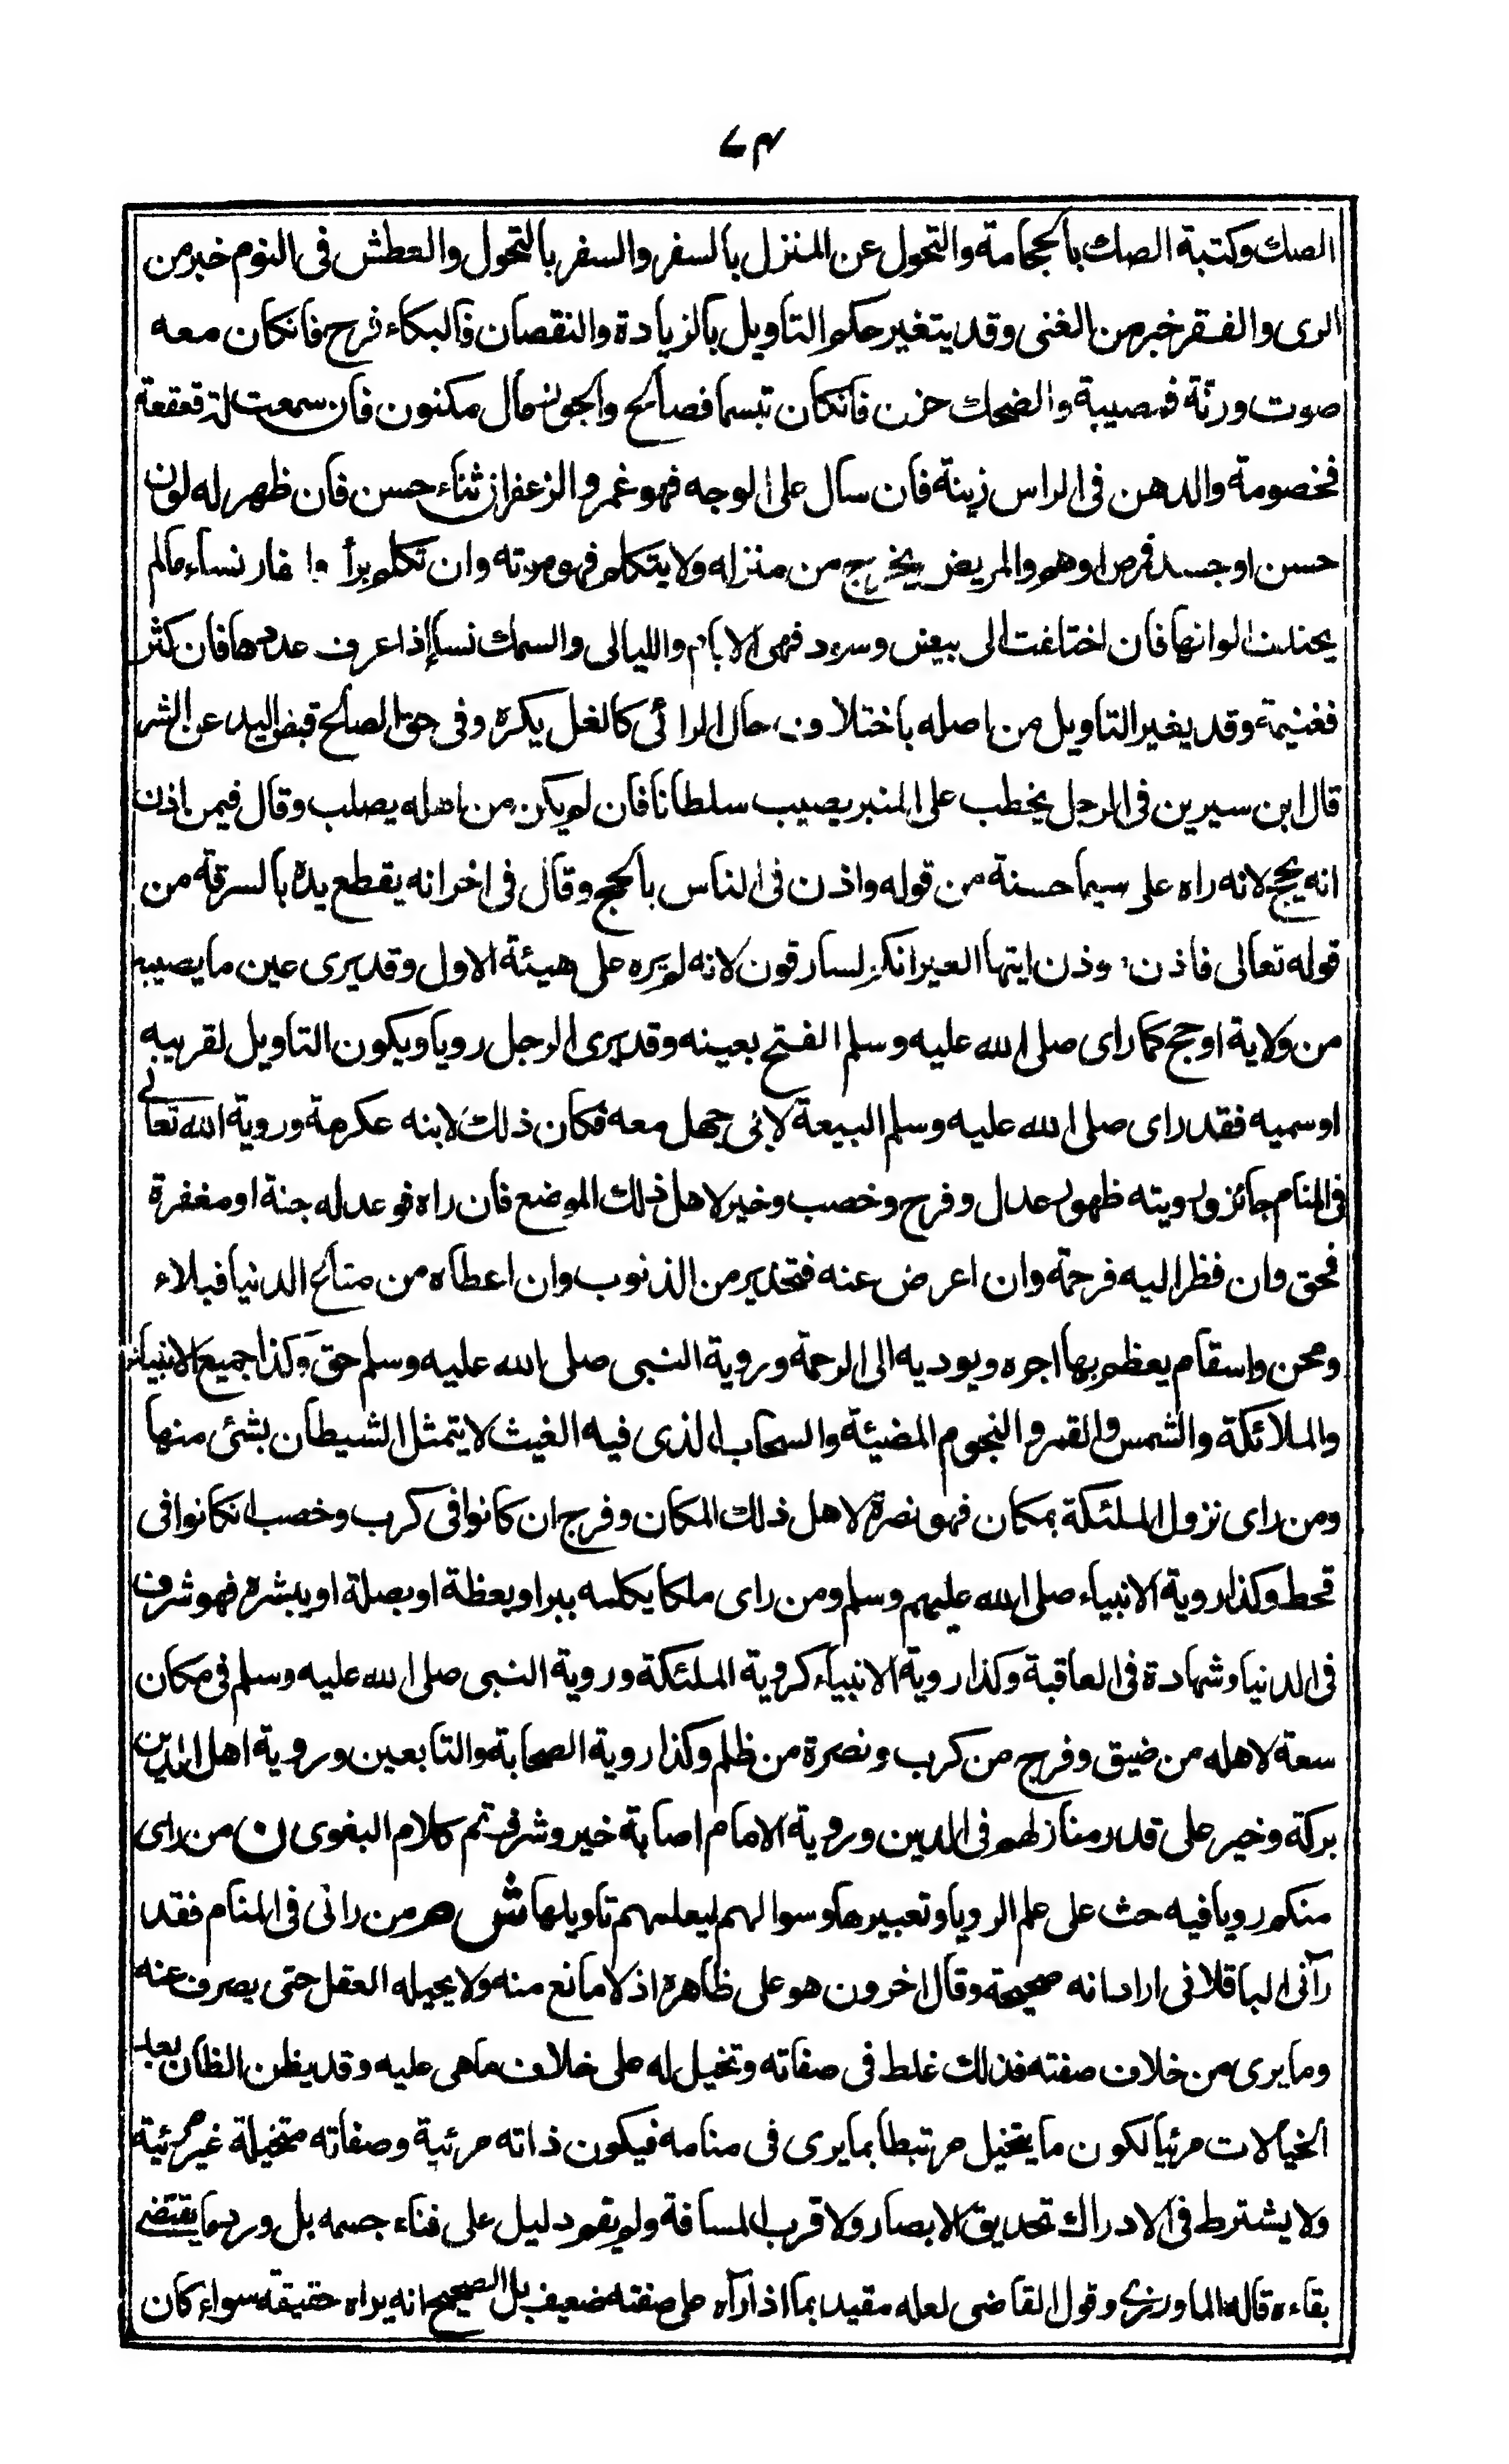 ٧٤
الصك وكتبة الصك بالحجامة والتحول عن المنزل بالسفر والسفر بالتحول والعطش فى النوم خير من
الرى والفقر خير من الغنى وقد يتغير حكم التاويل بالزيادة والنقصان فالبكاء فرح فانكان معه
صوت ورنة فمصيبة والضحك حزن فانكان تبسما فصالح والجوز مال مكنون فان سمعت له قعقعة
فخصومة والدهن فى الراس زينة فان سال على الوجه فهو غم والزعفران ثناء حسن فان ظهر له لون
حسن او جسد فمرض او هم والمريض يخرج من منزله ولا يتكلم فهو موته وان تكلم برأ والفار نساء مالم
يختلف الوانها فان اختلفت الى بيض وسود فهى الايام والليالى والسمك نساء إذا عرف عددها فان كثر
فغنيمة وقد يغير التاويل من اصله باختلاف حال الرائى كالغل يكره وفى حق الصالح قبض اليد عن الشر
قال ابن سيرين فى الرجل يخطب على المنبر يصيب سلطانا فان لم يكن من اهله يصلب وقال فيمن اذن
انه يحج لانه راه على سيما حسنة من قوله واذن فى الناس بالحج وقال فى اخر انه يقطع يده بالسرقة من
قوله تعالى فاذن موذن ايتها العير انكم لسارقون لانه لم يره على هيئة الاول وقد يرى عين ما يصيبه
من ولاية او حج كما راى صلى الله عليه وسلم الفتح بعينه وقد يرى الرجل رويا ويكون التاويل لقريبه
او سميه فقد راى صلى الله عليه وسلم البيعة لابى جهل معه فكان ذلك لابنه عكرمة وروية الله تعالى
فى المنام جائز ورويته ظهور عدل وفرح وخصب وخير لاهل ذلك الموضع فان راه فوعد له جنة او مغفرة
فحق وان نظر اليه فرحمة وان اعرض عنه فتحذير من الذنوب وان اعطاه من متاع الدنيا فبلاء
ومحن واسقام يعظم بها اجره ويوديه الى الرحمة وروية النبى صلى الله عليه وسلم حق وكذا جميع الانبياء
والملائكة والشمس والقمر والنجوم المضيئة والسحاب الذى فيه الغيث لا يتمثل الشيطان بشئ منها
ومن راى نزول الملئكة بمكان فهو نصرة لاهل ذلك المكان وفرج ان كانوا فى كرب وخصب انكانوا فى
قحط وكذا روية الانبياء صلى الله عليهم وسلم ومن راى ملكا يكلمه ببر او بعظة او بصلة او يبشره فهو شرف
فى الدنيا وشهادة فى العاقبة وكذا روية الانبياء كروية الملئكة وروية النبى صلى الله عليه وسلم فى مكان
سعة لاهله من ضيق وفرج من كرب ونصرة من ظلم وكذا روية الصحابة والتابعين وروية اهل الدين
بركة وخير على قدر منازلهم فى الدين وروية الامام اصابة خير وشرف تم كلام البغوى ن من راى
منكم رويا فيه حث على علم الرويا وتعبيرها وسوالهم ليعلمهم تاويلها ش هر من رانى فى المنام فقد
رآنى الباقلانى اراد انه صحيحة وقال اخرون هو على ظاهره اذ لا مانع منه ولا يحيله العقل حتى يصرف عنه
وما يرى من خلاف صفته فذلك غلط فى صفاته وتخيل له على خلاف ماهى عليه وقد يظن الظان بعد
الخيالات مرئيا لكون ما يتخيل مرتبطا بما يرى فى منامه فيكون ذاته مرئية وصفاته متخيلة غير مرئية
ولا يشترط فى الادراك تحديق الابصار ولا قرب المسافة ولم يقم دليل على فناء جسمه بل ورد ما يقتضى
بقاءه قاله الماوردى وقول القاضى لعله مقيد بما اذا رآه على صفته ضعيف بل الصحيح انه يراه حقيقة سواء كان